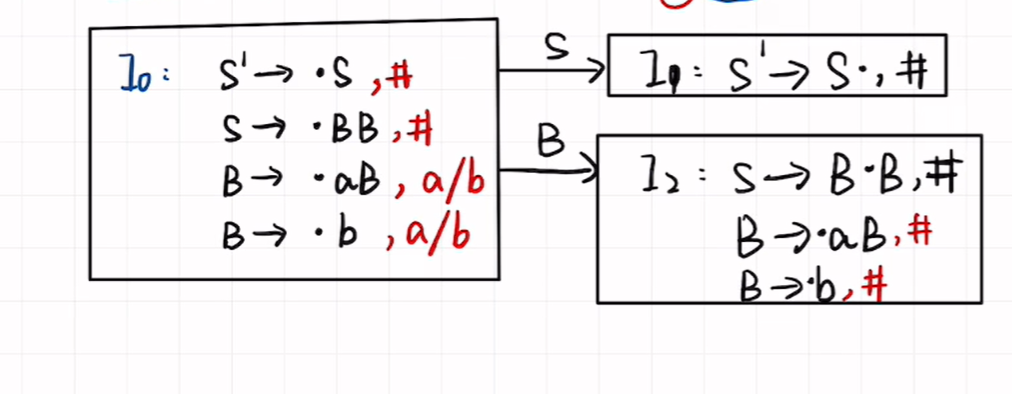 I₀: S'→ ·S ,#
S→ ·BB ,#
B→ ·aB , a/b
B→ ·b , a/b
S
I₁: S'→ S·, #
B
I₂: S→ B·B,#
B→·aB,#
B→·b,#